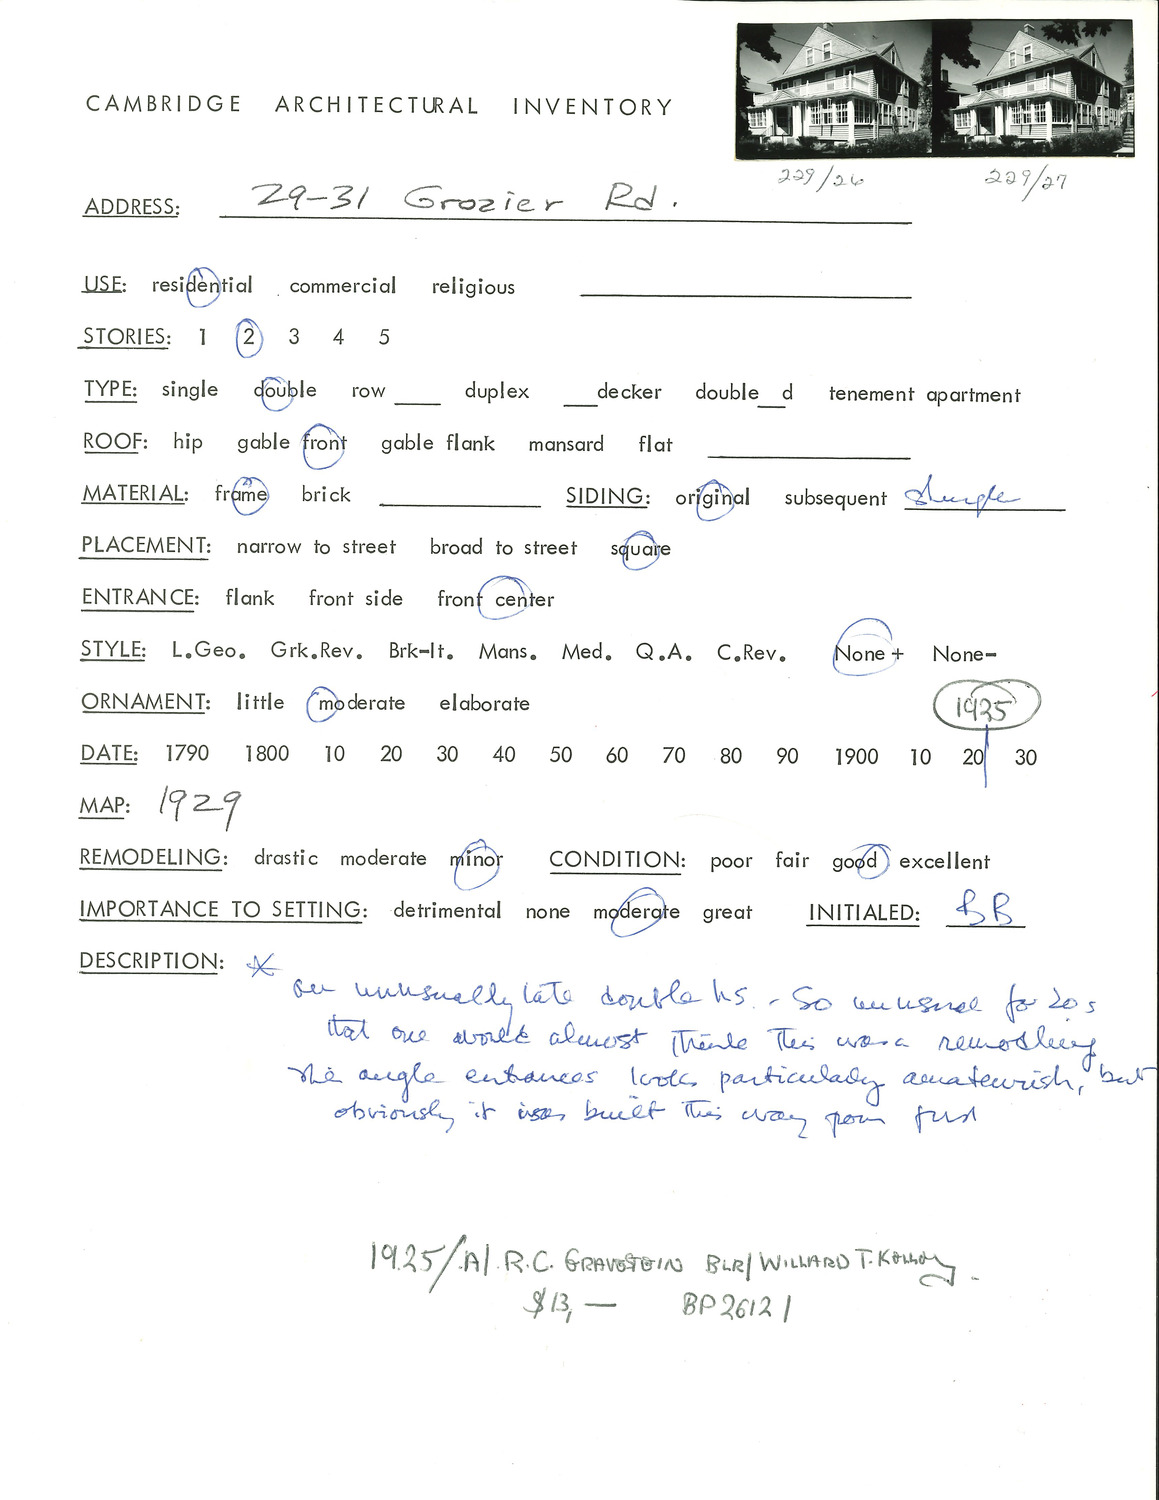 CAMBRIDGE ARCHITECTURAL INVENTORY
229/26 229/27
ADDRESS: 29-31 Grozier Rd.
USE: residential commercial religious
STORIES: 1 2 3 4 5
TYPE: single double row ____ duplex ___decker double__d tenement apartment
ROOF: hip gable front gable flank mansard flat
MATERIAL: frame brick SIDING: original subsequent shingle
PLACEMENT: narrow to street broad to street square
ENTRANCE: flank front side front center
STYLE: L.Geo. Grk.Rev. Brk-It. Mans. Med. Q.A. C.Rev. None+ None-
ORNAMENT: little moderate elaborate 1925
DATE: 1790 1800 10 20 30 40 50 60 70 80 90 1900 10 20 30
MAP: 1929
REMODELING: drastic moderate minor CONDITION: poor fair good excellent
IMPORTANCE TO SETTING: detrimental none moderate great INITIALED: BB
DESCRIPTION: *
an unusually late double hs. - So unusual for 20s
that one would almost think this was a remodling
The angle entrances looks particularly amateurish, but
obviously it was built this way from first
1925/A/ R.C. GRAVSTEIN BLR/ WILLARD T.
$13,— BP26121